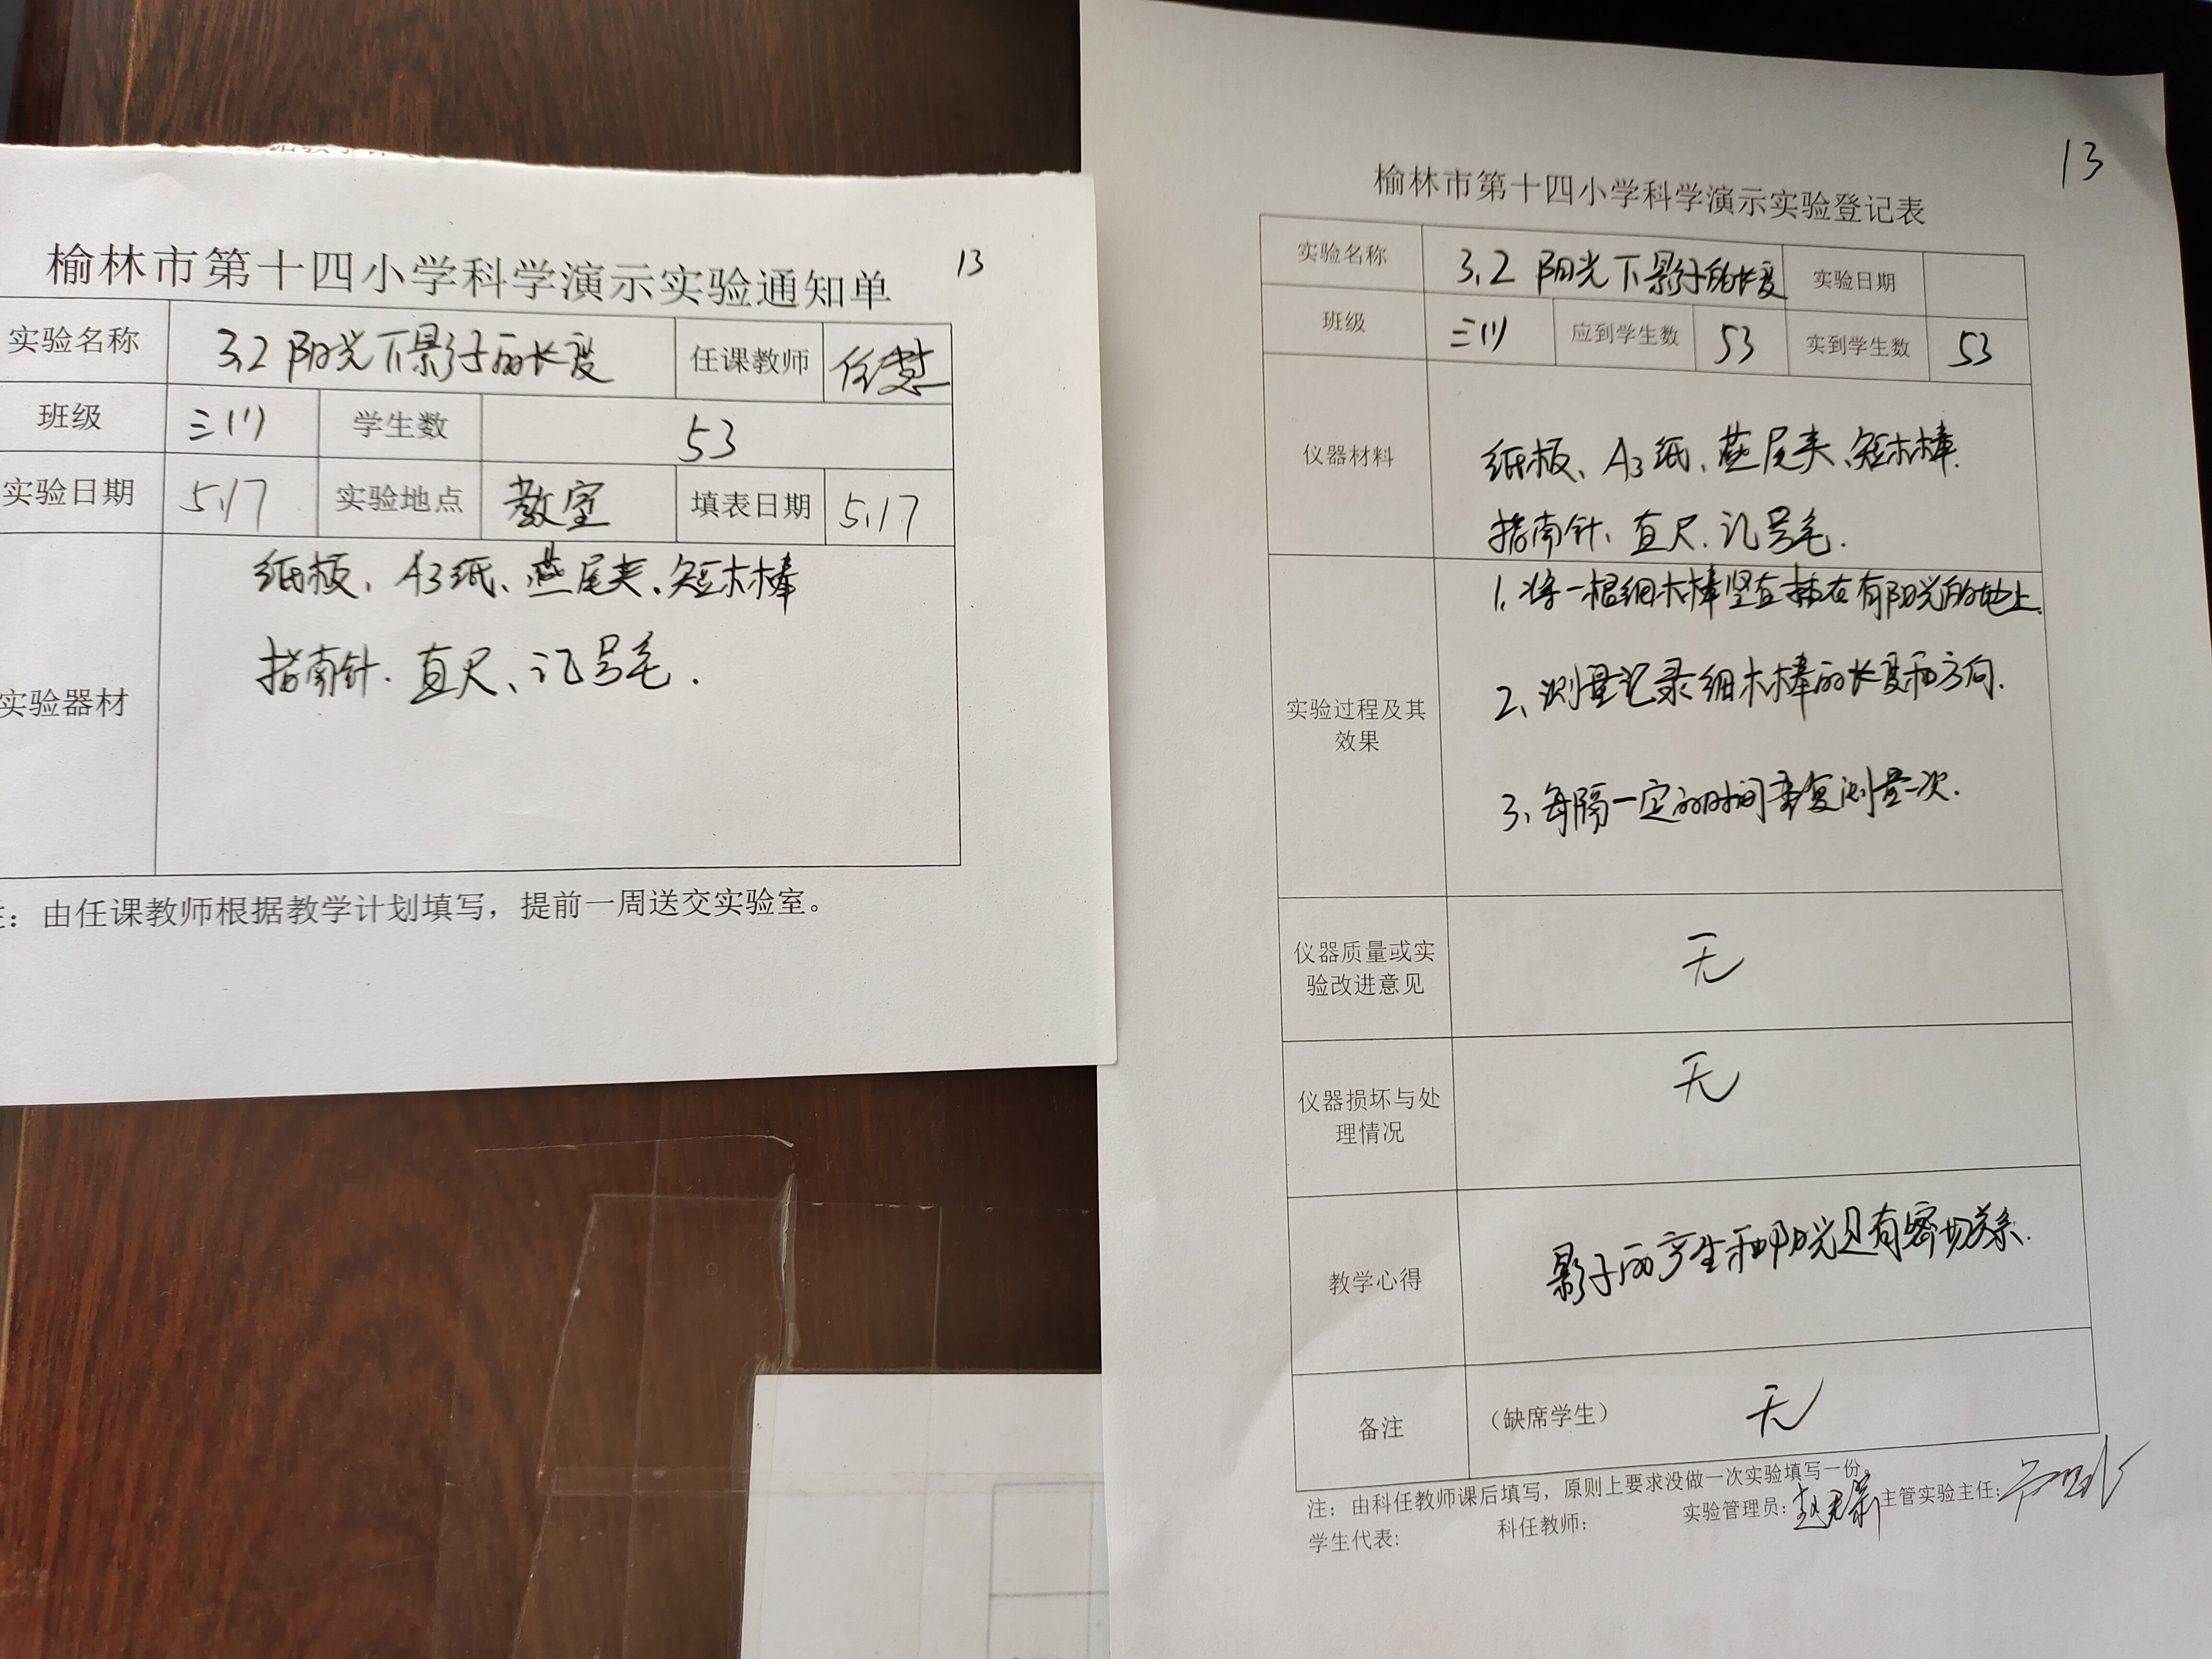 榆林市第十四小学科学演示实验通知单
13
实验名称 3.2 阳光下影子的长度 任课教师 任慧
班级 三(1) 学生数 53
实验日期 5.17 实验地点 教室 填表日期 5.17
实验器材
纸板、A3纸、燕尾夹、短木棒
指南针、直尺、记号毛.
：由任课教师根据教学计划填写，提前一周送交实验室。
13
榆林市第十四小学科学演示实验登记表
实验名称 3.2 阳光下影子的长度 实验日期
班级 三(1) 应到学生数 53 实到学生数 53
仪器材料
纸板、A3纸、燕尾夹、短木棒.
指南针、直尺、记号毛.
实验过程及其
效果
1、将一根细木棒竖直插在有阳光的地上.
2、测量记录细木棒的长度和方向.
3、每隔一定的时间重复测量一次.
仪器质量或实
验改进意见
无
仪器损坏与处
理情况
无
教学心得
影子的产生和阳光是有密切关系.
备注 （缺席学生） 无
注：由科任教师课后填写，原则上要求没做一次实验填写一份。
学生代表: 科任教师: 实验管理员: 主管实验主任: